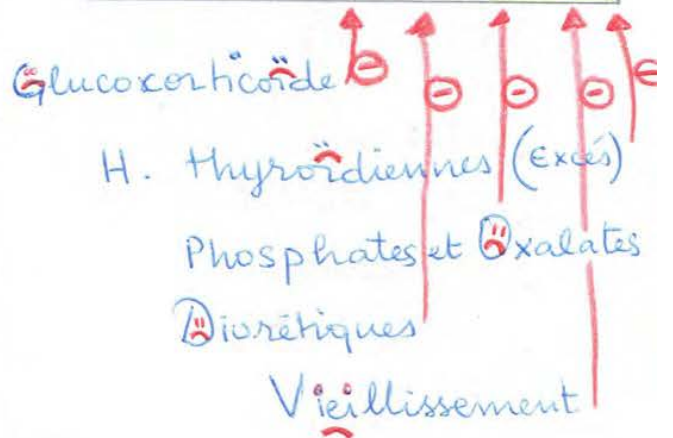 Glucocorticoïde ⊖ ⊖ ⊖ ⊖ ⊖
H. thyroïdiennes (Excés)
Phosphates et Oxalates
Diurétiques
Vieillissement